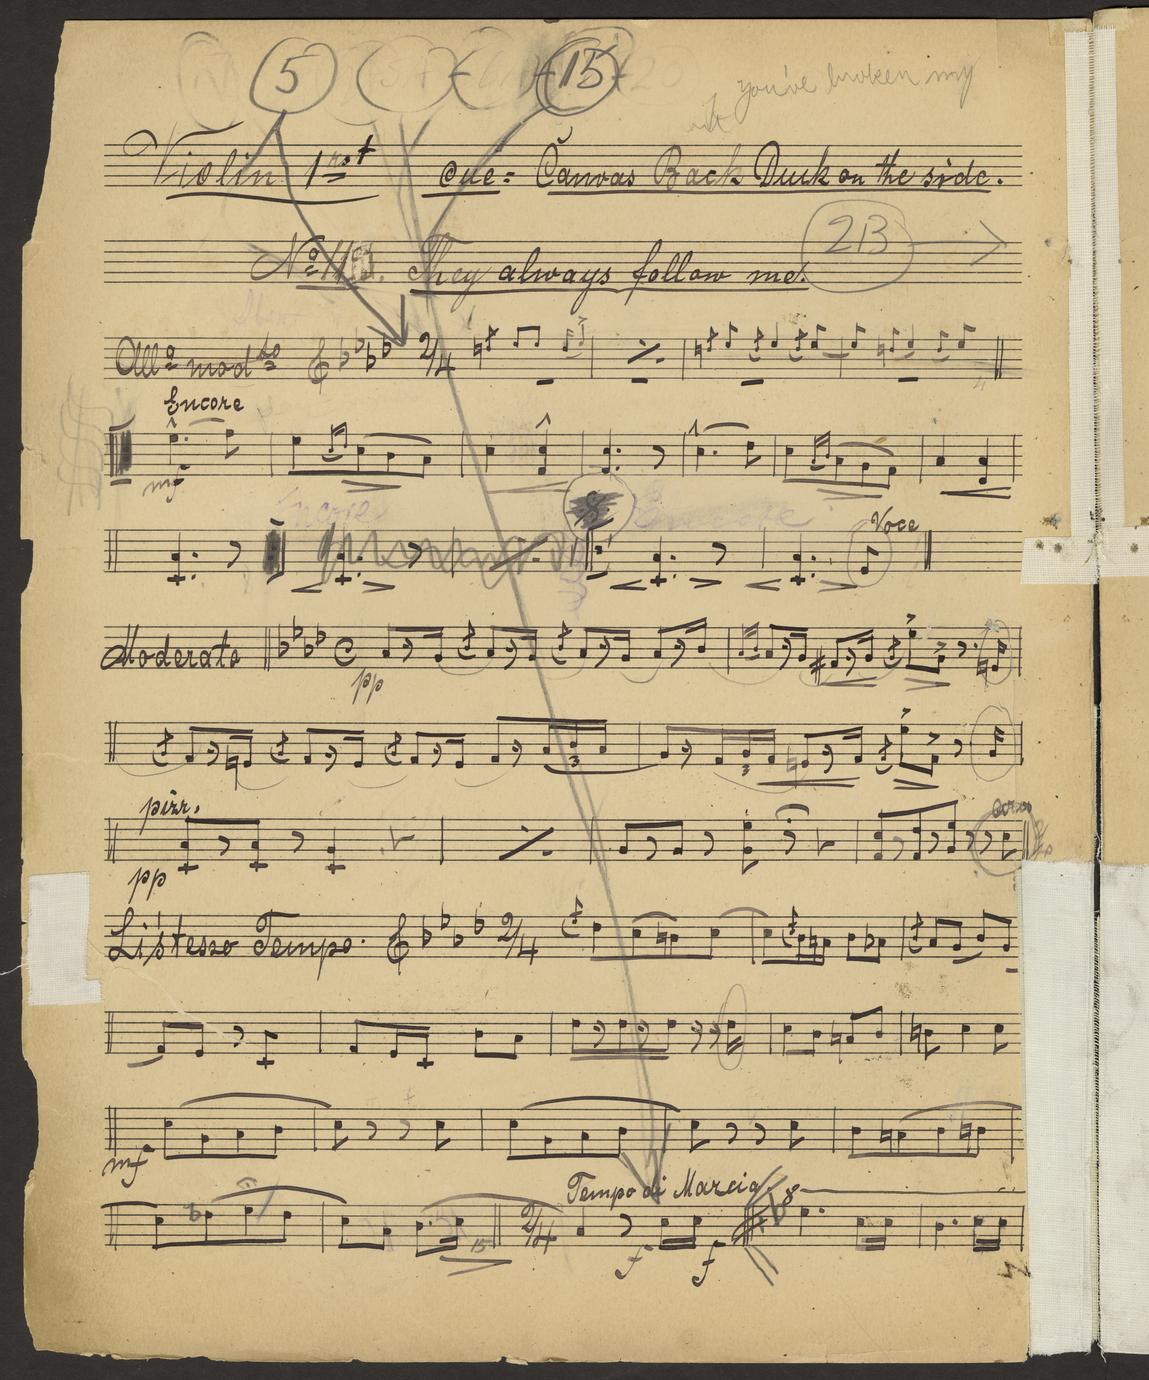 5 15
you've broken my
Violin 1st cue= Canvas Back Duck on the side.
No. 11 They always follow me. 2B
Allo modto 2/4
Encore
mf
Encores
Voce
Moderato C
pp
3 3
pizz.
pp
Li'stesso Tempo. 2/4
mf
Tempo di Marcia. 8
15 2/4
f f